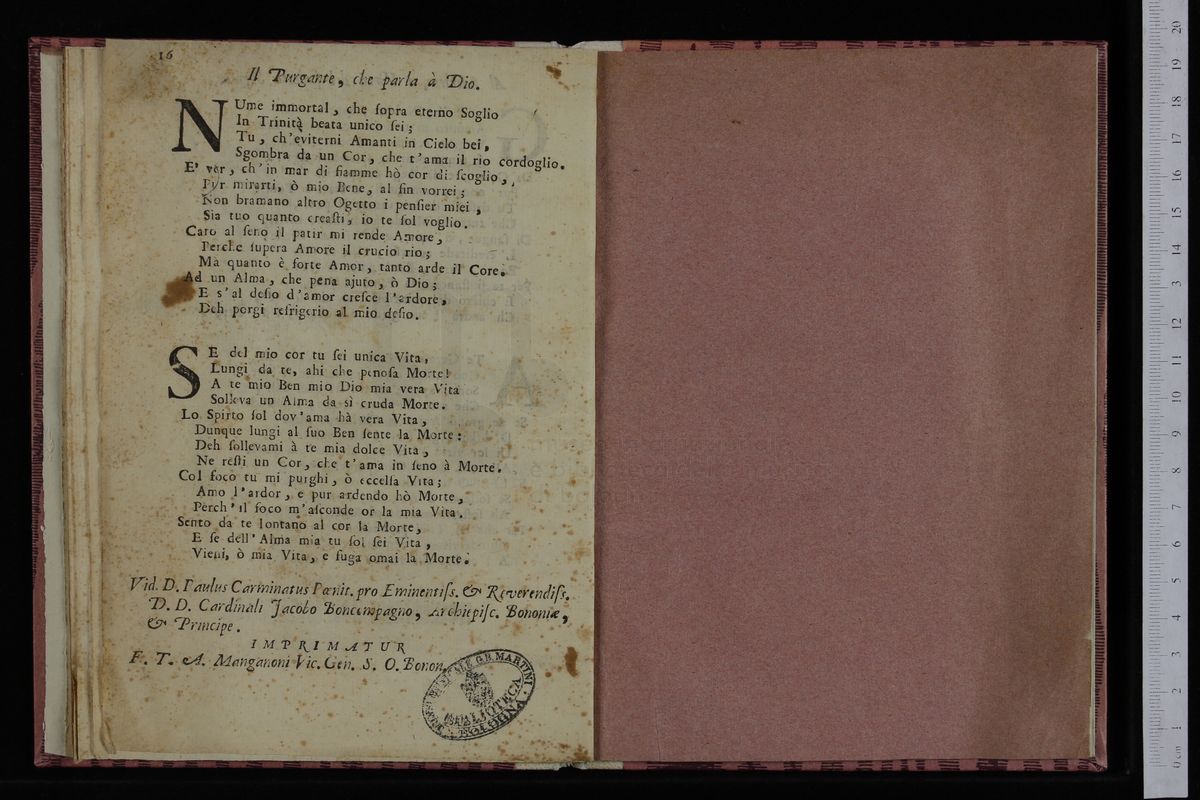 16
Il Purgante, che parla à Dio.
NUme immortal, che ſopra eterno Soglio
In Trinità beata unico ſei;
Tu, ch'eviterni Amanti in Cielo bei,
Sgombra da un Cor, che t'ama il rio cordoglio.
E' ver, ch'in mar di fiamme hò cor di ſcoglio,
Pur mirarti, ò mio Bene, al fin vorrei;
Non bramano altro Ogetto i penſier miei,
Sia tuo quanto creaſti, io te ſol voglio.
Caro al ſeno il patir mi rende Amore,
Perche ſupera Amore il crucio rio;
Ma quanto è forte Amor, tanto arde il Core.
Ad un Alma, che pena ajuto, ò Dio;
E s'al deſio d'amor creſce l'ardore,
Deh porgi refrigerio al mio deſio.
SE del mio cor tu ſei unica Vita,
Lungi da te, ahi che penoſa Morte!
A te mio Ben mio Dio mia vera Vita
Solleva un Alma da sì cruda Morte.
Lo Spirto ſol dov'ama hà vera Vita,
Dunque lungi al ſuo Ben ſente la Morte:
Deh ſollevami à te mia dolce Vita,
Ne reſti un Cor, che t'ama in ſeno à Morte.
Col foco tu mi purghi, ò eccelſa Vita;
Amo l'ardor, e pur ardendo hò Morte,
Perch' il foco m'aſconde or la mia Vita.
Sento da te lontano al cor la Morte,
E ſe dell' Alma mia tu ſol ſei Vita,
Vieni, ò mia Vita, e fuga omai la Morte.
Vid. D. Paulus Carminatus Pœnit. pro Eminentiſs. & Reverendiſs.
D. D. Cardinali Jacobo Boncompagno, Archiepiſc. Bononiæ,
& Principe.
IMPRIMATUR
F. T. A. Manganoni Vic. Gen. S. O. Bonon.
G.B. MARTINI
BIBLIOTECA
BOLOGNA
0 cm 1 2 3 4 5 6 7 8 9 10 11 12 13 14 15 16 17 18 19 20